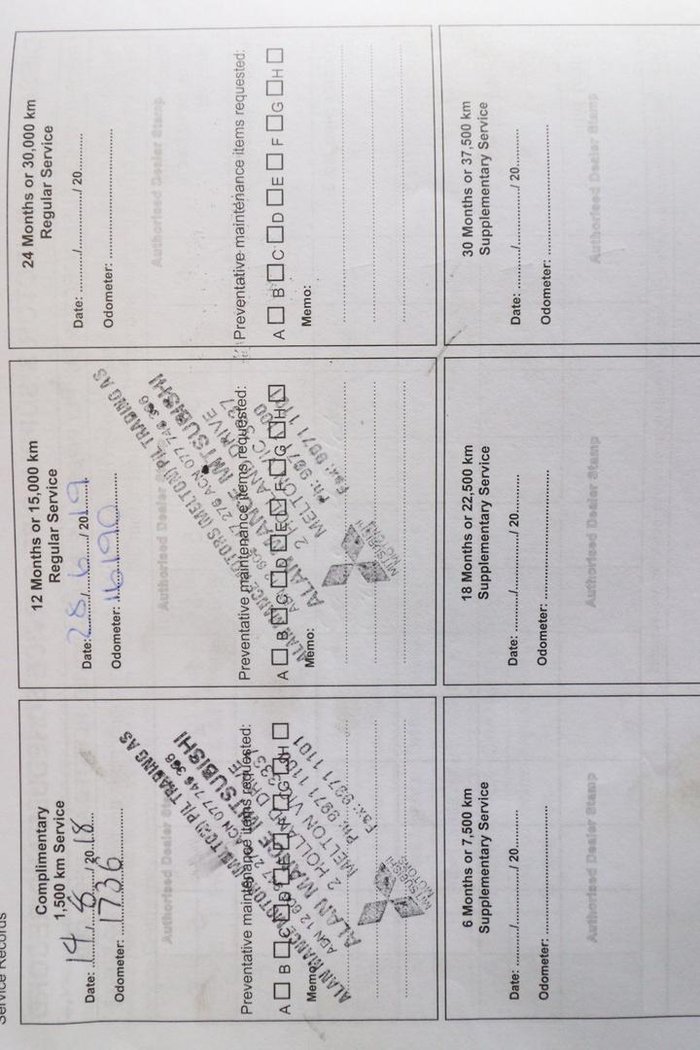 Service Records
Complimentary
1,500 km Service
Date: 14/8/2018
Odometer: 1736
Authorised Dealer Stamp
ALAN MANCE MOTORS (MELTON) P/L TRADING AS
ACN 077 746
ALAN MANCE MITSUBISHI
2 HOLLAND DRIVE
MELTON VIC
Ph: 9971 1100
Fax: 9971 1101
MITSUBISHI
MOTORS
Preventative maintenance items requested:
A B C D E F G H
Memo:
12 Months or 15,000 km
Regular Service
Date: 28/6/2019
Odometer: 16190
Authorised Dealer
ALAN MANCE MOTORS (MELTON) P/L TRADING AS
ACN 077 746
ALAN MANCE MITSUBISHI
2 DRIVE
MELTON VIC
Ph: 9971 1100
Fax: 9971
MITSUBISHI
MOTORS
Preventative maintenance items requested:
A B C D E F G H
Memo:
24 Months or 30,000 km
Regular Service
Date: ........../........../ 20..........
Odometer: ..............................
Authorised Dealer Stamp
Preventative maintenance items requested:
A B C D E F G H
Memo:
6 Months or 7,500 km
Supplementary Service
Date: ........../........../ 20..........
Odometer: ..............................
Authorised Dealer Stamp
18 Months or 22,500 km
Supplementary Service
Date: ........../........../ 20..........
Odometer: ..............................
Authorised Dealer Stamp
30 Months or 37,500 km
Supplementary Service
Date: ........../........../ 20..........
Odometer: ..............................
Authorised Dealer Stamp